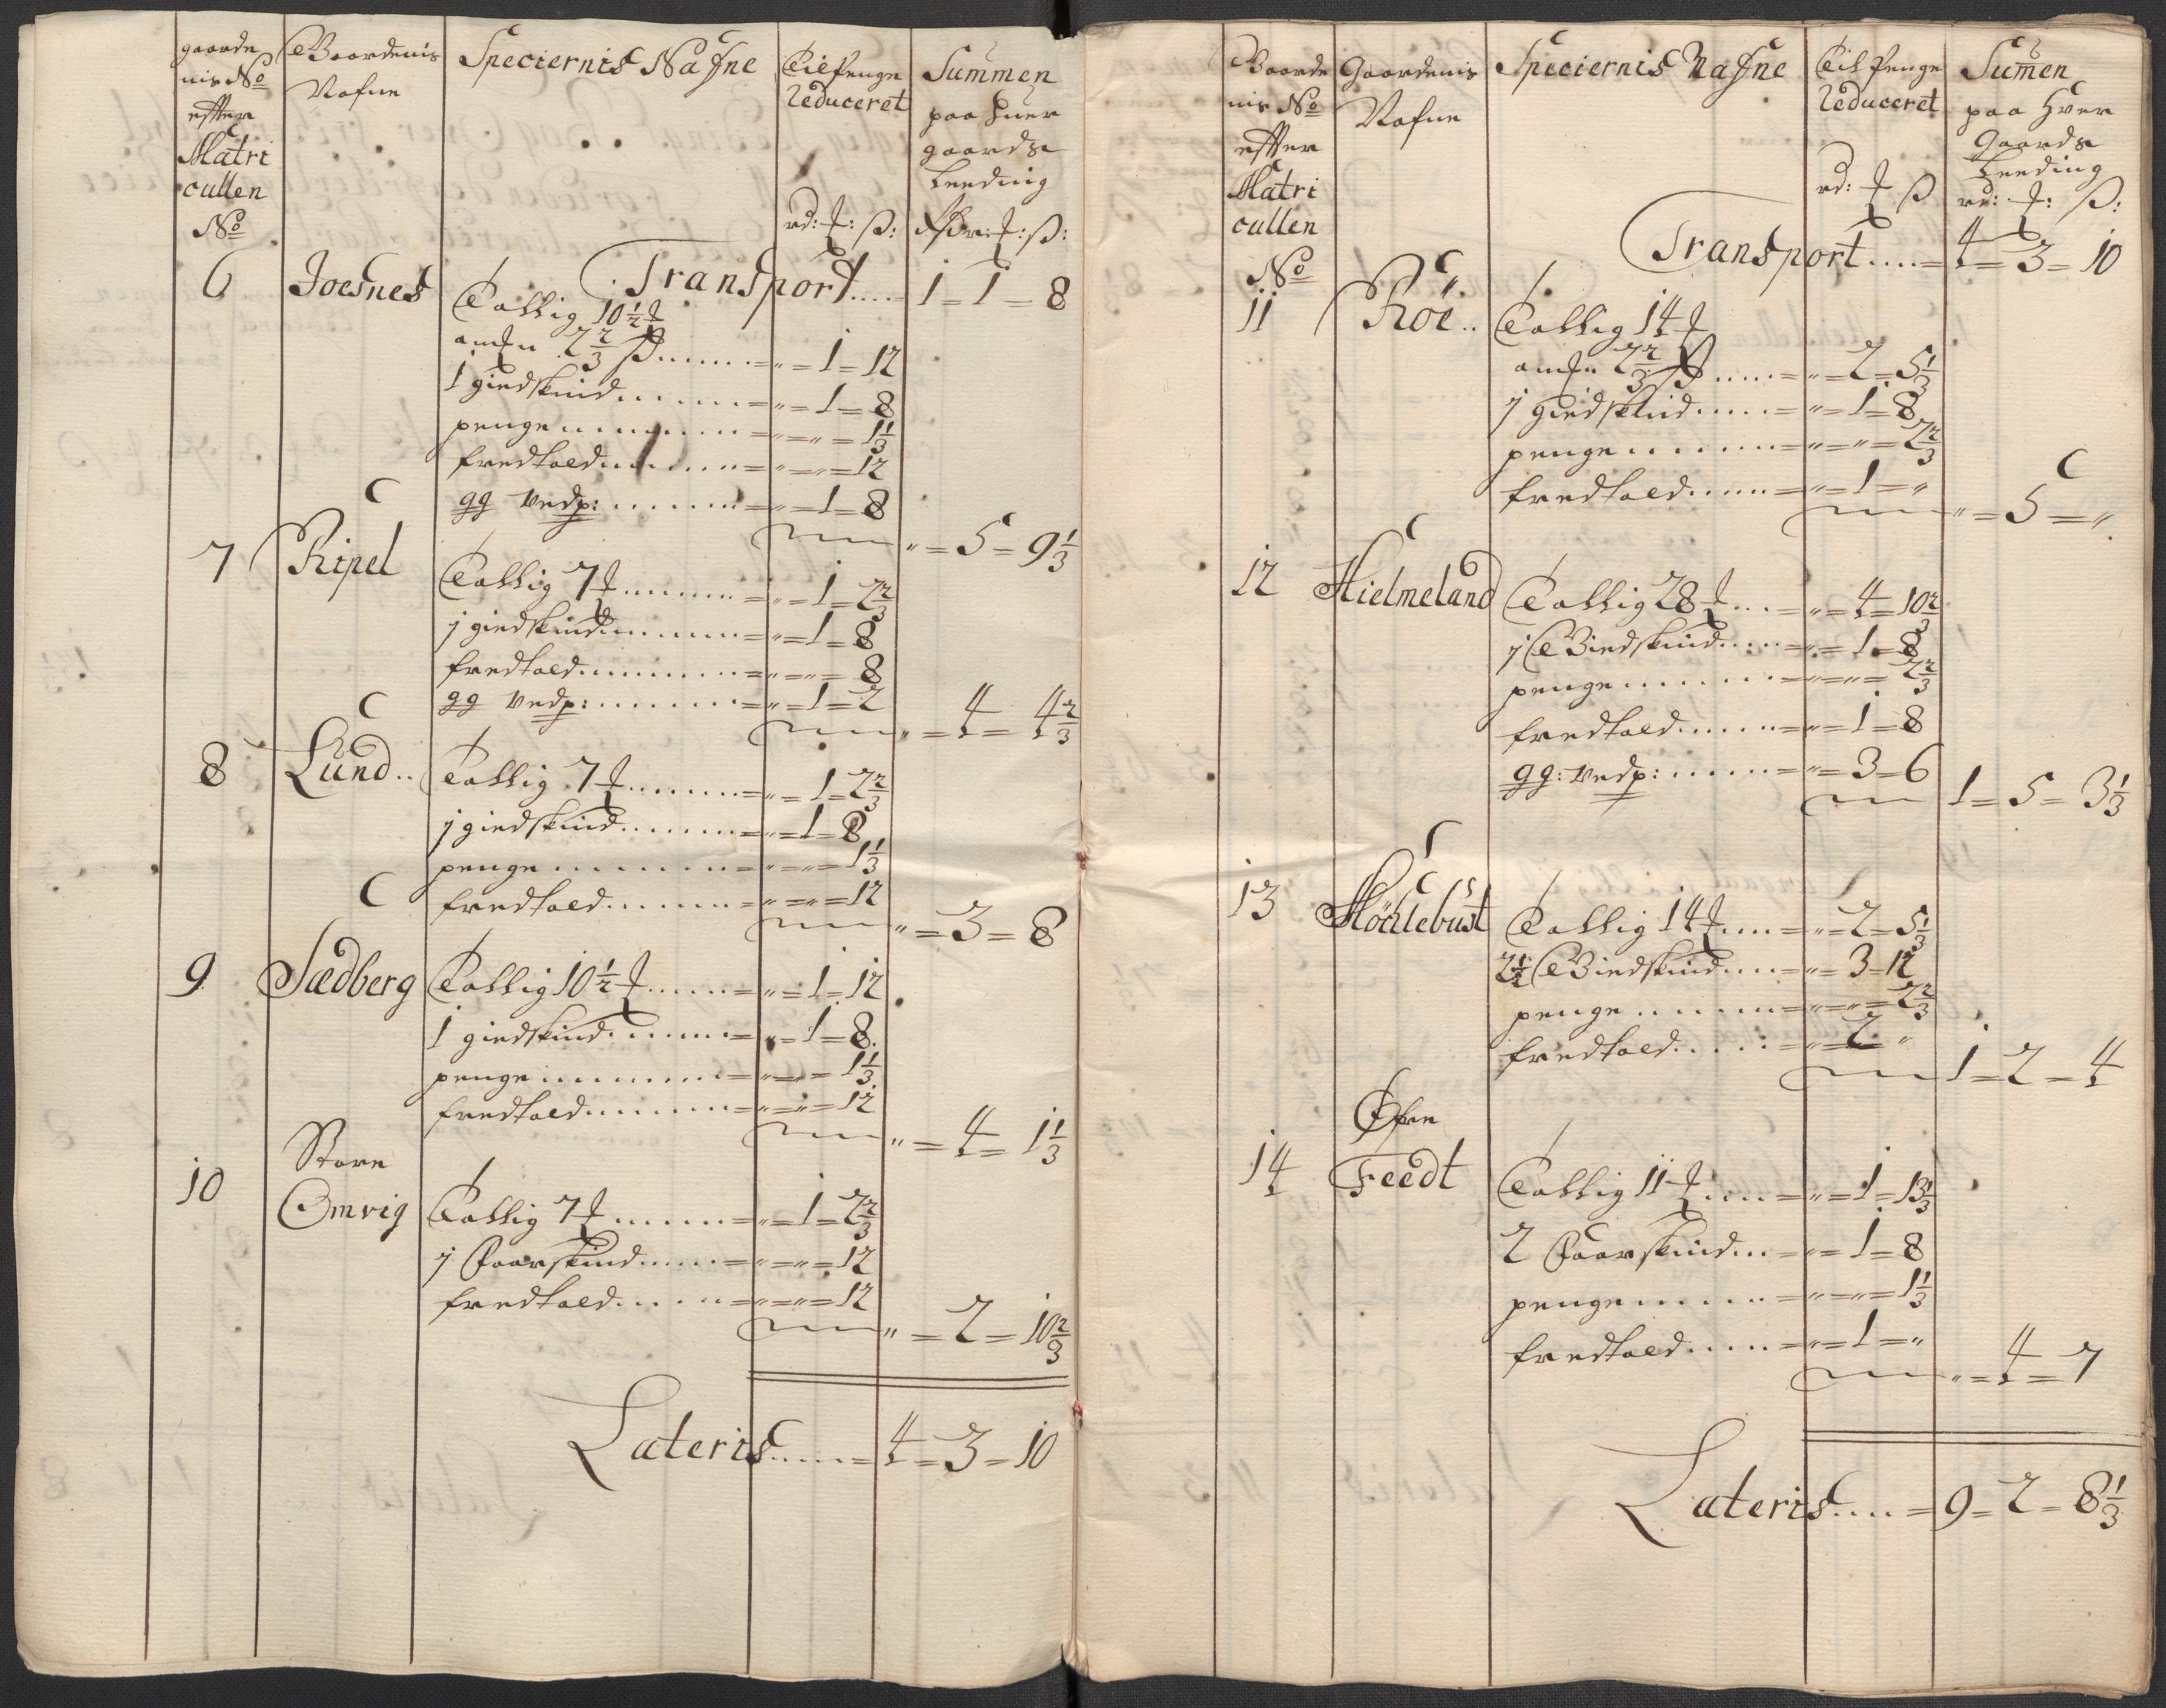 gaarde
nis No
efter
Matri
cullen
No
Gaardenis
Nafne
Speciernis Nafne
Til penge
Reduceret
rd: ƒ: ß:
Summen
paa huer
gaards
Leeding
Rdr: ƒ: ß:
Transport .... 1 = 1 = 8
6 Joesnes
Tallig 10 1/2 ƒ
2 2/3 ß ...... = " = 1 = 12
1 giedskind ...... = " = 1 = 8
penge ...... = " = " = 1 1/3
fredtold ...... = " = " = 12
gg vedp: ...... = " = 1 = 8
" = 5 = 9 1/3
7 Ripel
Tallig 7 ƒ ...... = " = 1 = 2 2/3
j giedskind ...... = " = 1 = 8
fredtold ...... = " = " = 8
gg vedp: ...... = " = 1 = 2
" = 4 = 4 2/3
8 Lund ..
Tallig 7 ƒ ...... = " = 1 = 2 2/3
j giedskind ...... = " = 1 = 8
penge ...... = " = " = 1 1/3
fredtold ...... = " = " = 12
" = 3 = 8
9 Sædberg
Tallig 10 1/2 ƒ ...... = " = 1 = 12
1 giedskind ...... = " = 1 = 8
penge ...... = " = " = 1 1/3
fredtold ...... = " = " = 12
" = 4 = 1 1/3
10 Store
Omvig
Tallig 7 ƒ ...... = " = 1 = 2 2/3
j Faarskind ...... = " = " = 12
fredtold ...... = " = " = 12
" = 2 = 10 2/3
Lateris ..... = 4 = 3 = 10
Gaarde
nis No
efter
Matri
cullen
No
Gaardenis
Nafne
Speciernis Nafne
Til penge
Reduceret
rd: ƒ ß
Sumen
paa Hver
Gaards
Leeding
rd: ƒ: ß:
Transport .... = 4 = 3 = 10
11 Röe ..
Tallig 14 ƒ
2 2/3 ß ..... = " = 2 = 5 1/3
j giedskind ..... = " = 1 = 8
penge ...... = " = " = 2 2/3
fredtold ..... = " = 1 = "
" = 5 = "
12 Hielmeland
Tallig 28 ƒ ... = " = 4 = 10 2/3
j Giedskind ..... = " = 1 = 8
penge ...... = " = " = 2 2/3
fredtold ..... = " = 1 = 8
gg: vedp: ...... = " = 3 = 6
1 = 5 = 3 1/3
13 Höchlebust
Tallig 14 ƒ .... = " = 2 = 5 1/3
2 1/2 Giedskind .... = " = 3 = 12
penge ...... = " = " = 2 2/3
fredtold ..... = " = 2 "
1 = 2 = 4
14 Øfre
Feedt
Tallig 11 ƒ .... = " = 1 = 13 1/3
2 Faarskind ... = " = 1 = 8
penge ...... = " = " = 1 1/3
fredtold ..... = " = 1 = "
" = 4 = 7
Lateris .... = 9 = 2 = 8 1/3